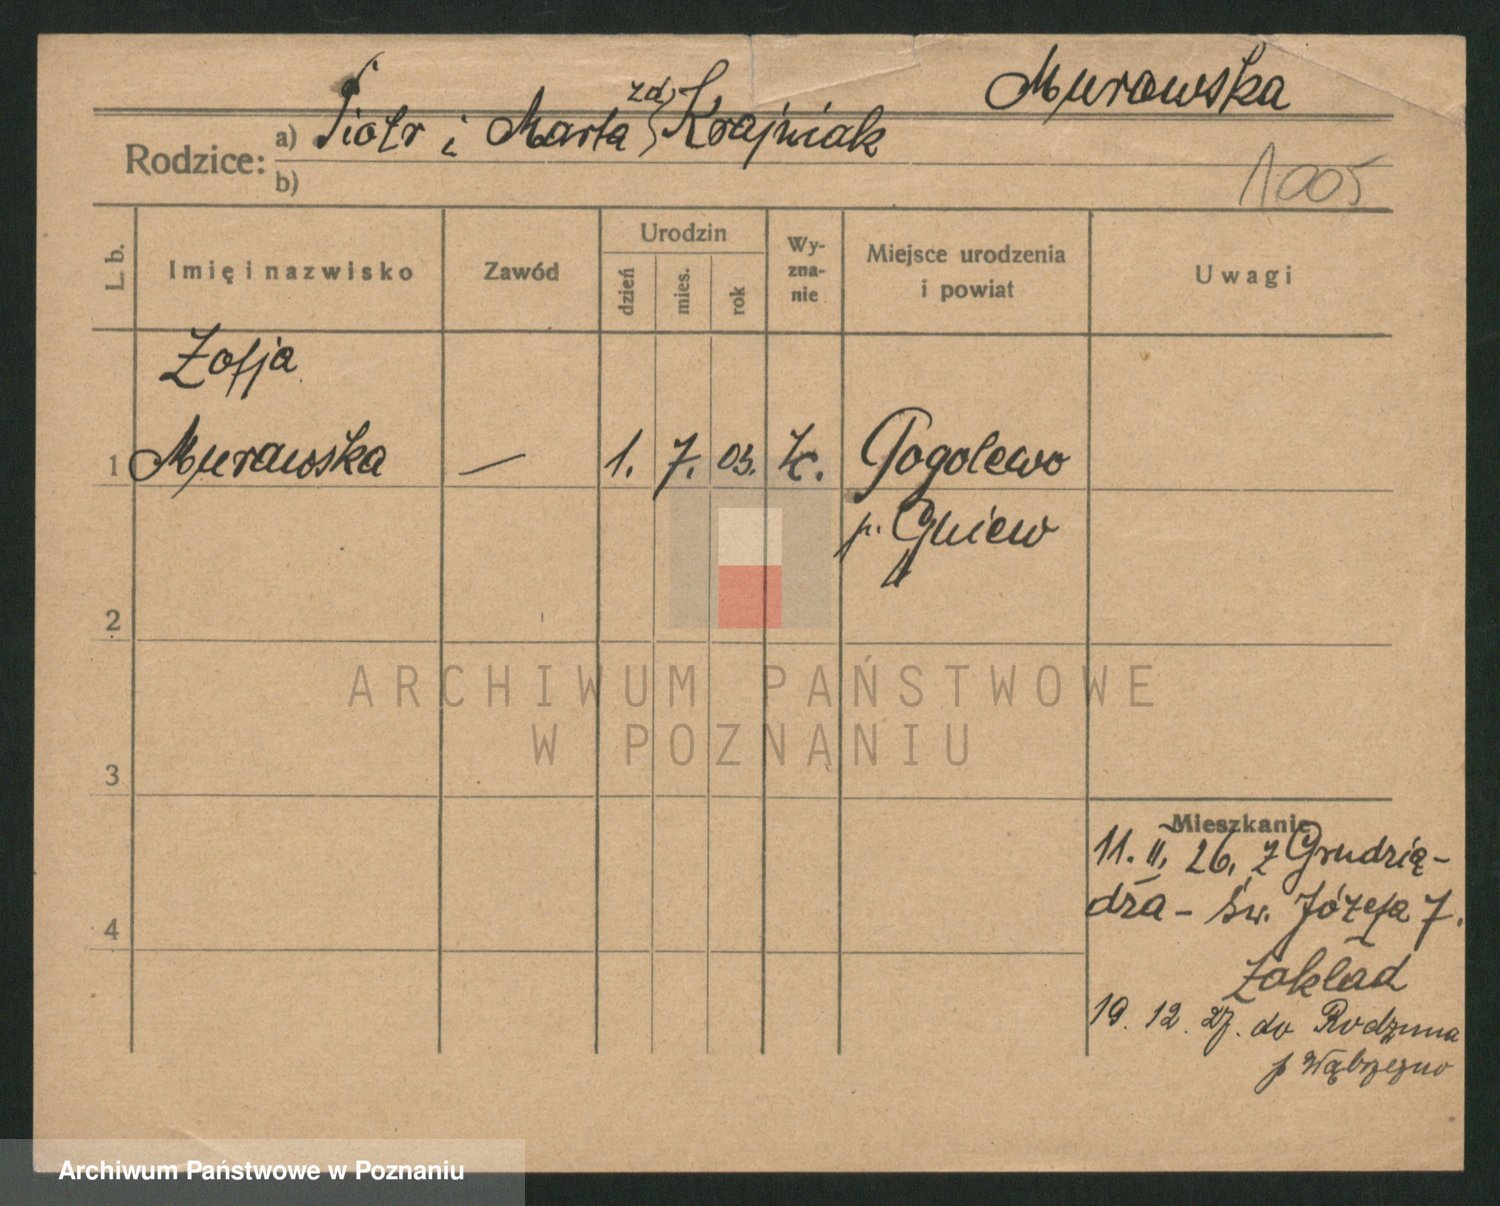 Murawska
a) Piotr i Marta zd. Krajniak
Rodzice:
b)
1005
L. b.
Imię i nazwisko
Zawód
Urodzin
dzień
mies.
rok
Wy-
zna-
nie
Miejsce urodzenia
i powiat
Uwagi
Zofja
1 Murawska — 1. 7. 03. K. Pogolewo
p. Gniew
2
ARCHIWUM PAŃSTWOWE
W POZNANIU
3
Mieszkanie
11. II. 26. z Grudzią-
dza - św. Józefa 7.
4
Zakład
19. 12. 27. do
p Wąbrzeźno
Archiwum Państwowe w Poznaniu